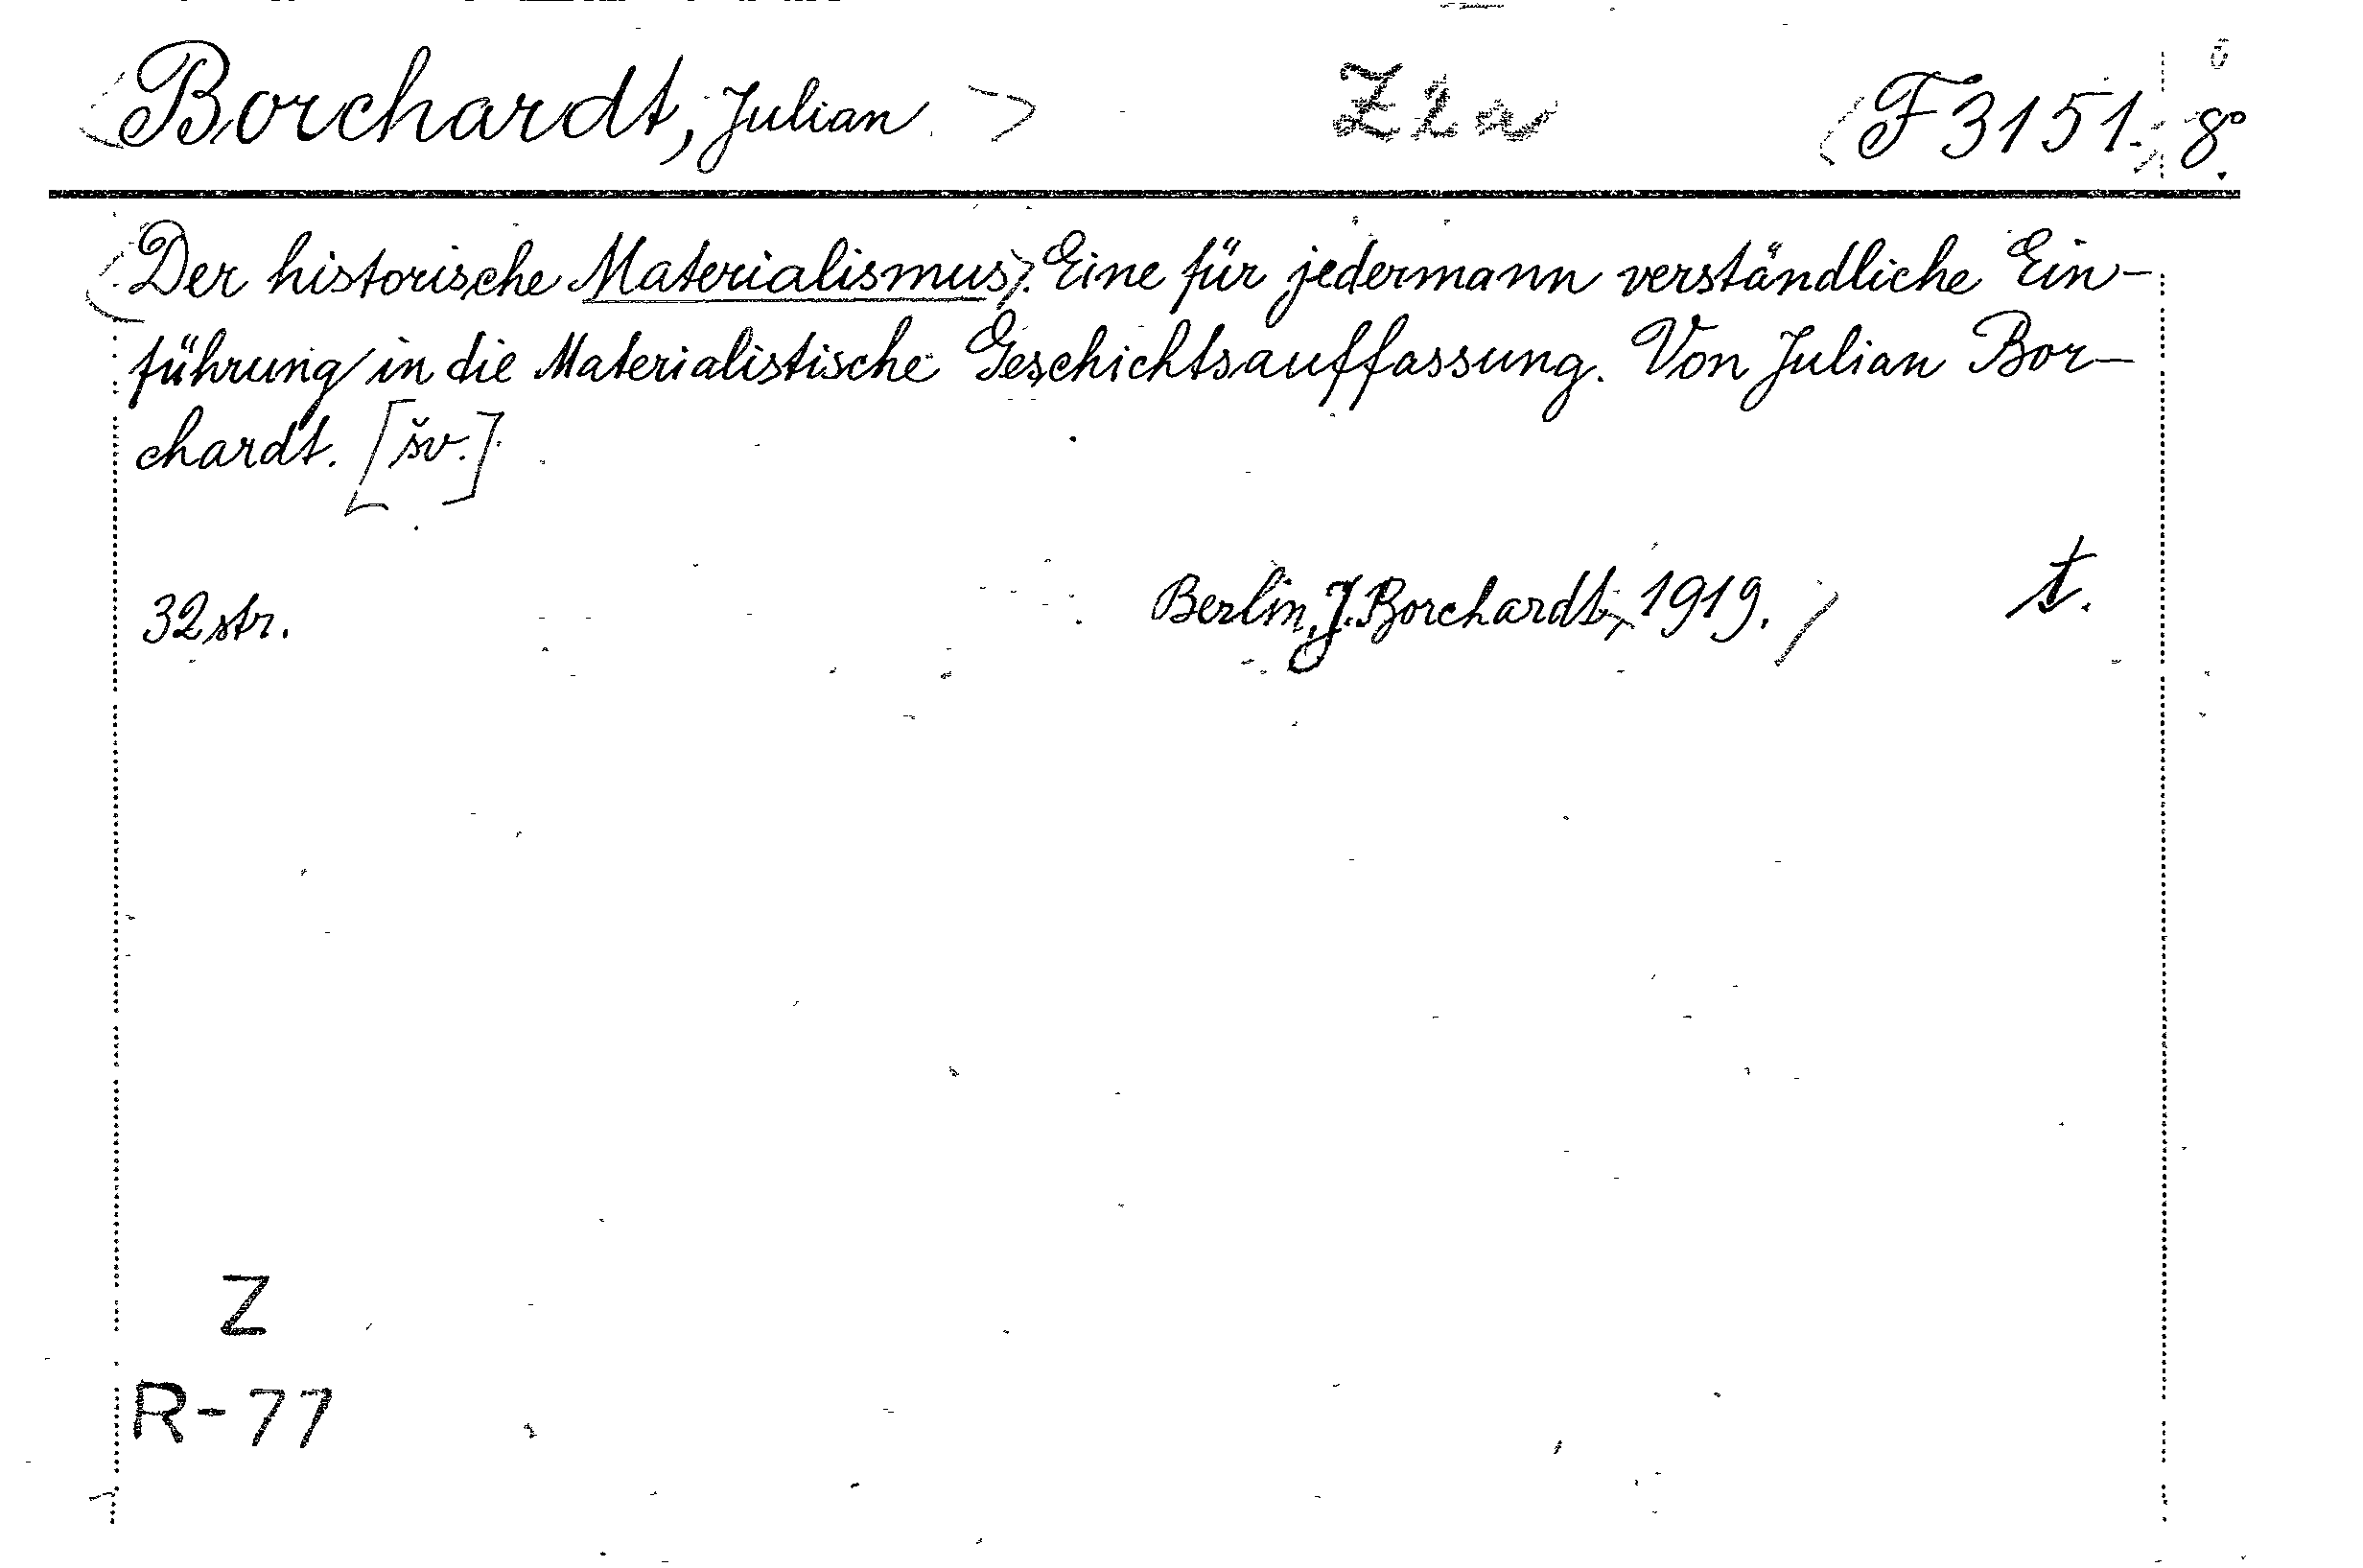 Borchardt, Julian Z 2 a F 3151. 8°.
Der historische Materialismus. Eine für jedermann verständliche Ein-
führung in die Materialistische Geschichtsauffassung. Von Julian Bor-
chardt. [šv.]
32 str. Berlin, J. Borchardt, 1919. t.
Z
R-77